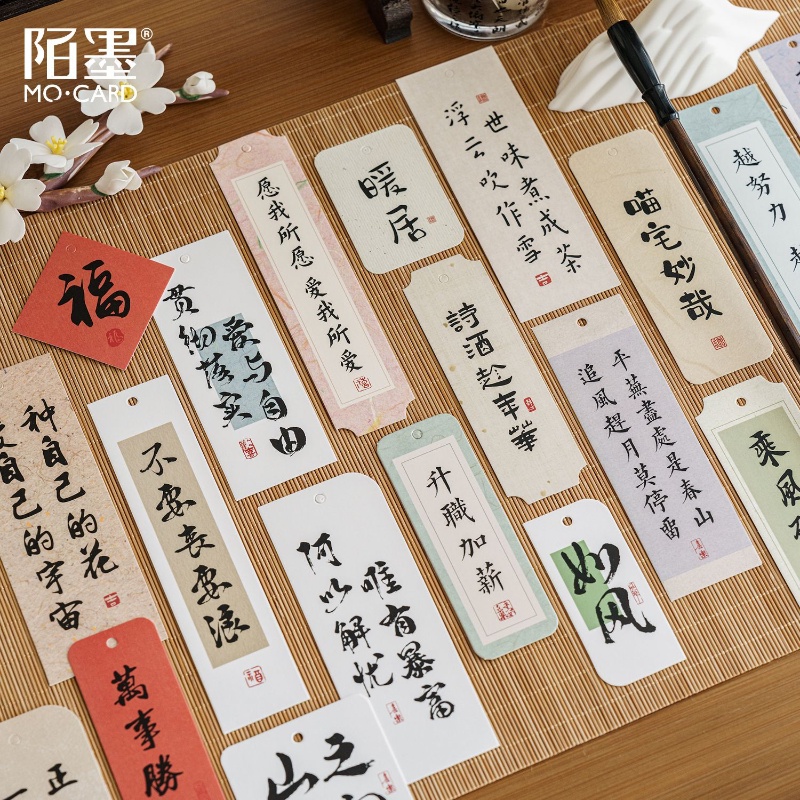 陌墨®
MO·CARD
福
贯彻落实
爱与自由
愿我所愿 爱我所爱
暖居
浮云吹作雪
世味煮成茶
喵宅妙哉
越努力
种自己的花
爱自己的宇宙
不要丧要浪
何以解忧
唯有暴富
升職加薪
詩酒趁年華
追風趕月莫停留
平蕪盡處是春山
如风
乘風
萬事勝
山
正
一